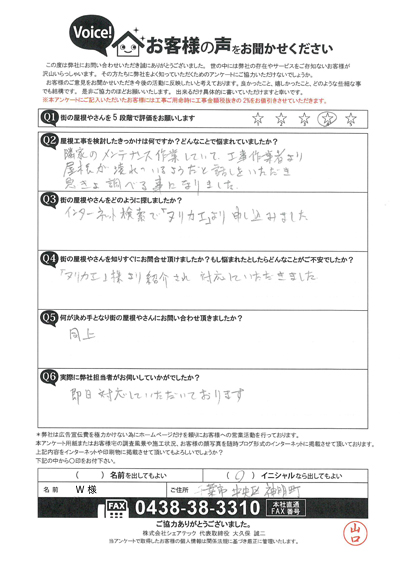 Voice!
お客様の声をお聞かせください
この度は弊社にお問い合わせいただき誠にありがとうございました。世の中には弊社の存在やサービスをご存知ないお客様が
沢山いらっしゃいます。その方たちに弊社をよく知っていただくためのアンケートにご協力いただけないでしょうか。
お客様のご意見をお聞かせいただき今後の活動に反映したいと考えております。良かったこと、嬉しかったこと、どのような些細な事
でも結構です。是非ご協力のほどお願いいたします。出来るだけ具体的に書いていただけますと幸いです。
※本アンケートにご記入いただいたお客様には工事ご用命時に工事金額税抜きの2%をお値引きさせていただきます。
Q1 街の屋根やさんを5段階で評価をお願いします
Q2 屋根工事を検討したきっかけは何ですか?どんなことで悩まれていましたか?
隣家のメンテナンス作業していて、工事作業者より
屋根が壊れているようだと話しをいただき
急きょ調べる事になりました。
Q3 街の屋根やさんをどのように探しましたか?
インターネット検索で「ヌリカエ」より申し込みました
Q4 街の屋根やさんを知りすぐにお問合せ頂けましたか?もし悩まれたとしたらどんなことがご不安でしたか?
「ヌリカエ」様より紹介され対応していただきました
Q5 何が決め手となり街の屋根やさんにお問い合わせ頂きましたか?
同上
Q6 実際に弊社担当者がお伺いしていかがでしたか?
即日対応していただいております
*弊社は広告宣伝費を極力かけない為にホームページだけを頼りにお客様への営業活動を行っております。
本アンケート用紙またはお客様宅の調査風景や施工状況、お客様の顔写真を随時ブログ形式のインターネットに掲載させて頂いております。
上記内容をインターネットや印刷物に掲載させて頂いてもよろしいでしょうか?
下記の中から○印をお付下さい。
( )名前を出してもよい
(○)イニシャルなら出してもよい
W様
ご住所
千葉市中央区神明町
FAX 0438-38-3310 本社直通FAX番号
ご協力ありがとうございました。
株式会社シェアテック 代表取締役 大久保 誠二
当アンケートで取得したお客様の個人情報は関係法規に基づき厳正に管理いたします。
山口